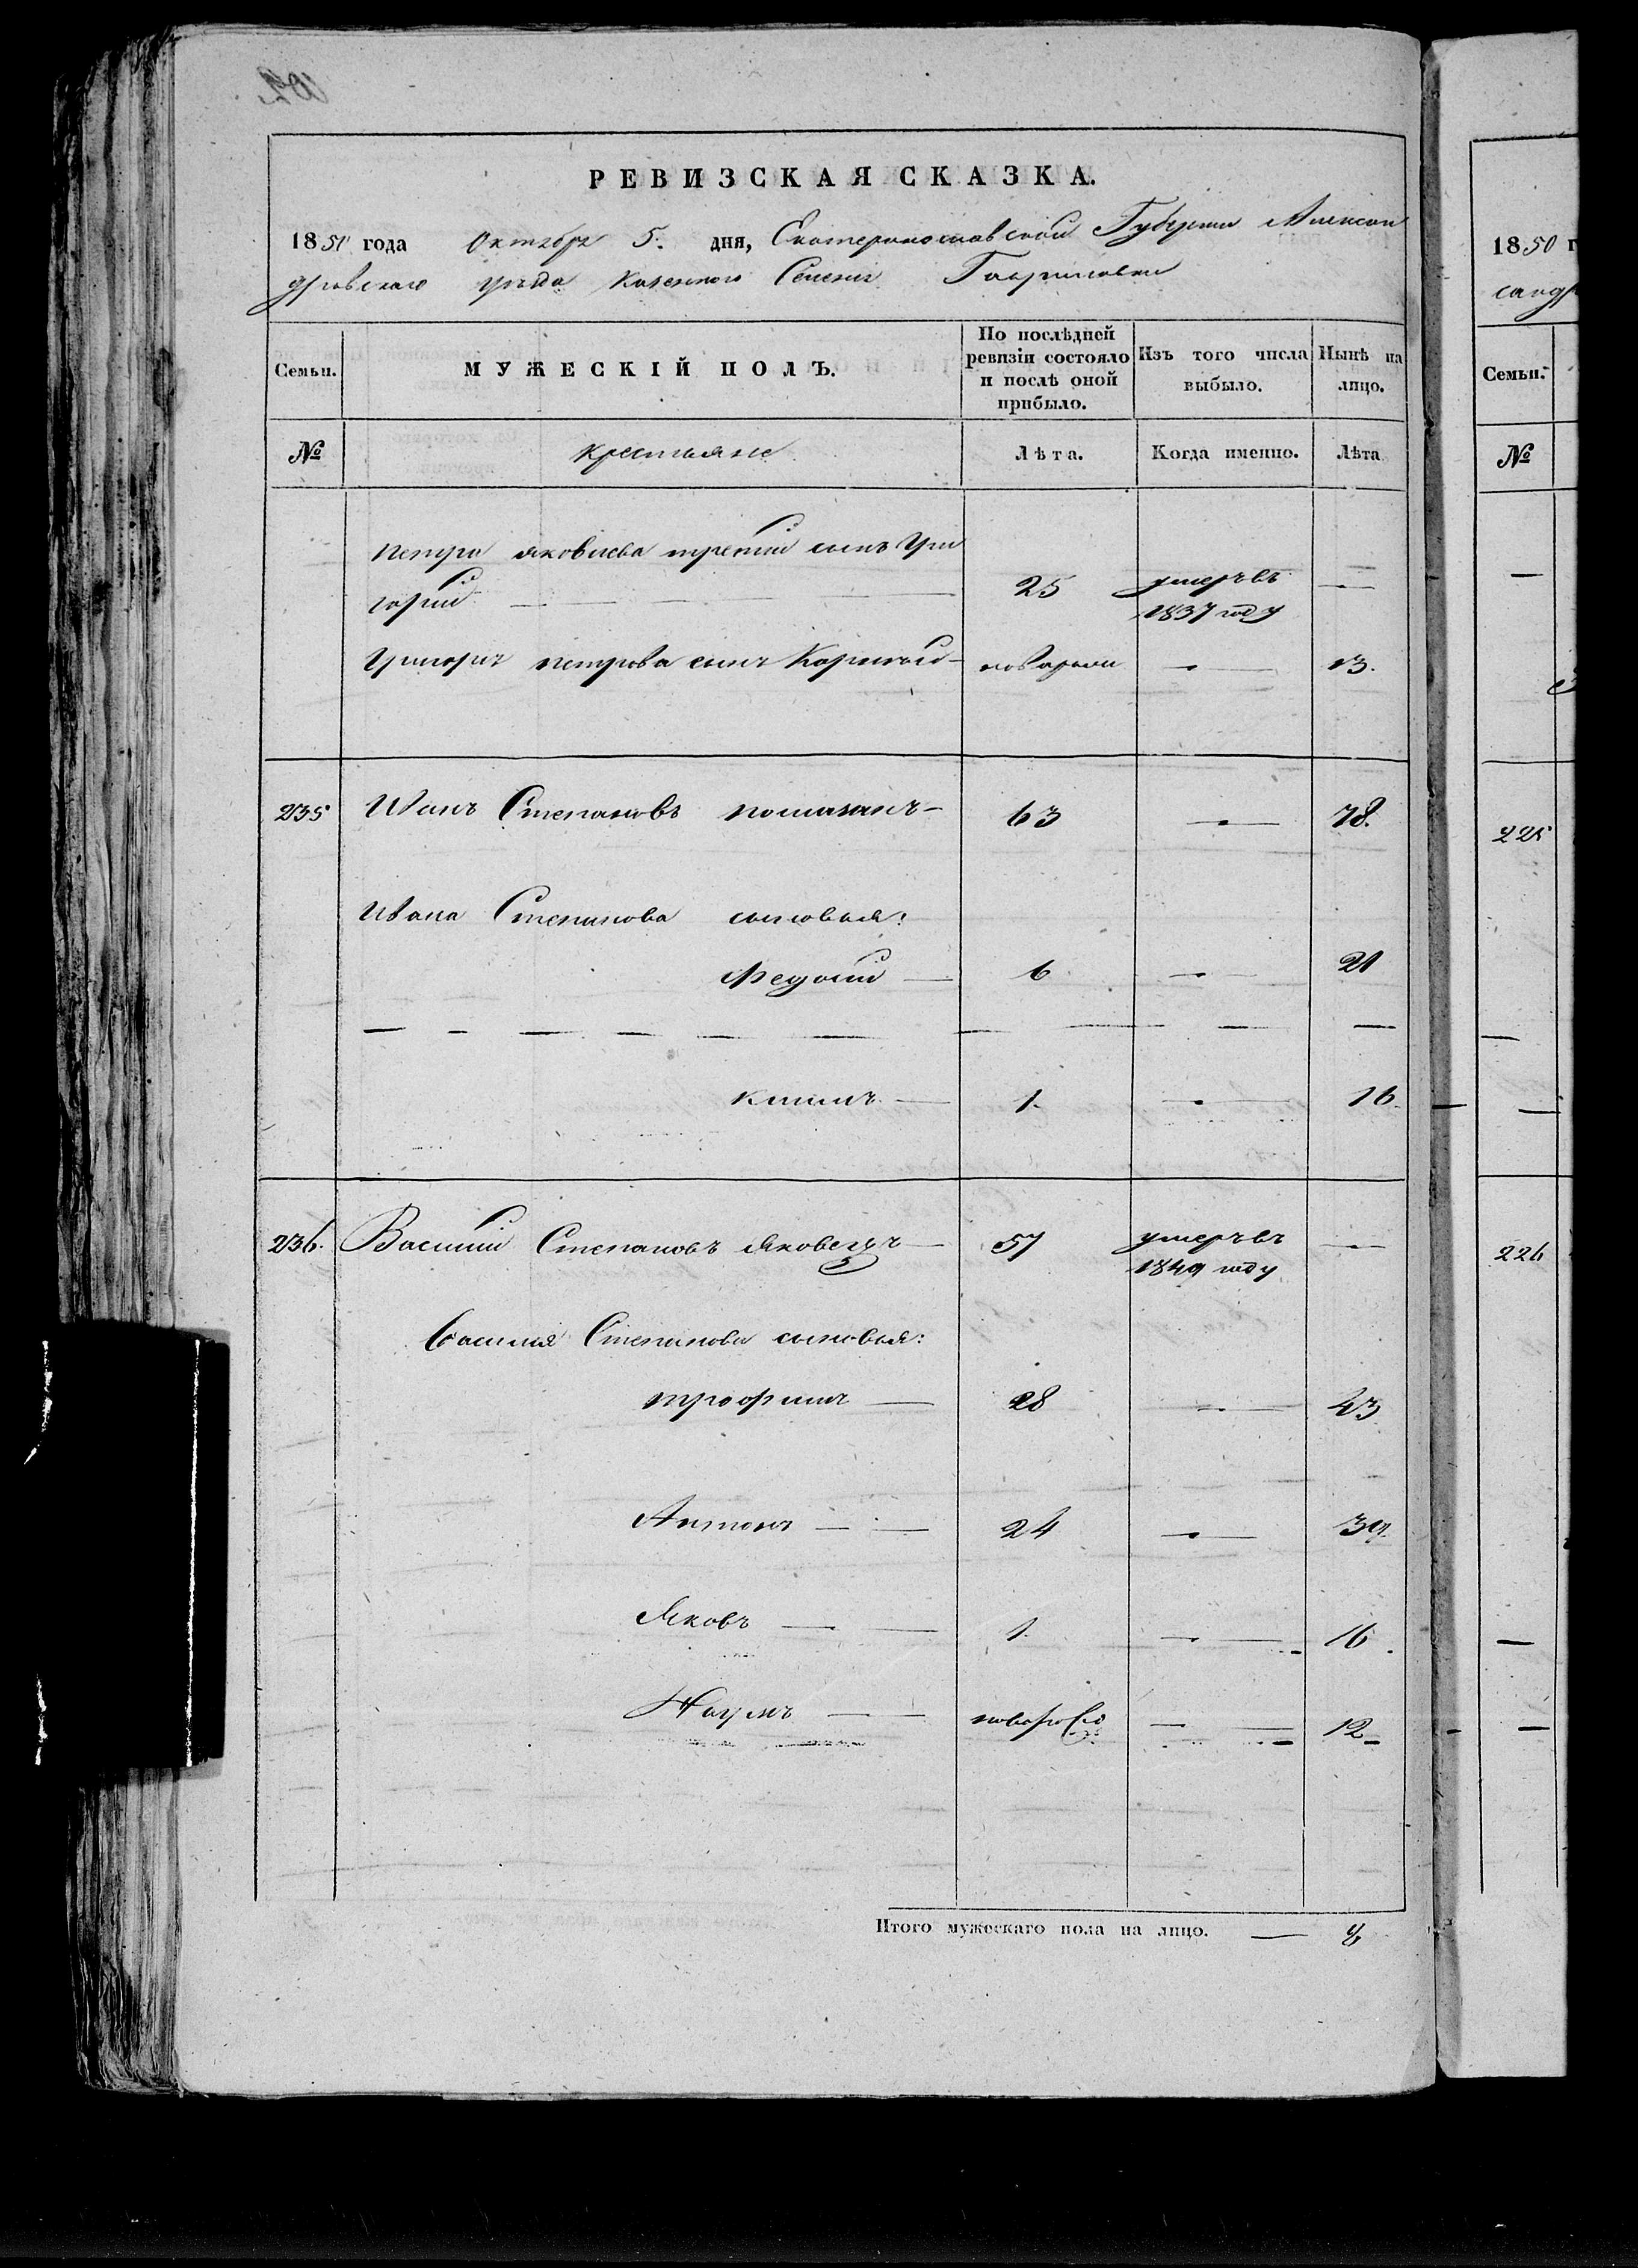 РЕВИЗСКАЯ СКАЗКА.
1850 года Октября 5. дня, Екатеринославской Губернии Алексан
дровскаго уезда Казенного Селения Гавриловки
Семьи. МУЖЕСКІЙ ПОЛЪ. По послѣдней ревизіи состояло и послѣ оной прибыло. Изъ того числа выбыло. Нынѣ на лицо.
№ крестьяне Лѣта. Когда именно. Лѣта
Петра Яковлева третий сынъ Гри
горий — 25 умеръ въ 1837 году —
Григорія Петрова сынъ — 13.
235 Иванъ Степановъ — 63 — 78.
Ивана Степанова сыновья:
Федосий — 6 — 21
Климъ — 1. — 16.
236. Василий Степановъ Яковецъ — 57 умеръ въ 1849 году —
Василия Степанова сыновья:
Трофимъ — 28 — 43
Антонъ — 24 — 39.
Яковъ — 1. — 16
Наумъ — новорож — 12
Итого мужескаго пола на лицо. — 8
1850 г
сандр
Семьи.
№
225
226